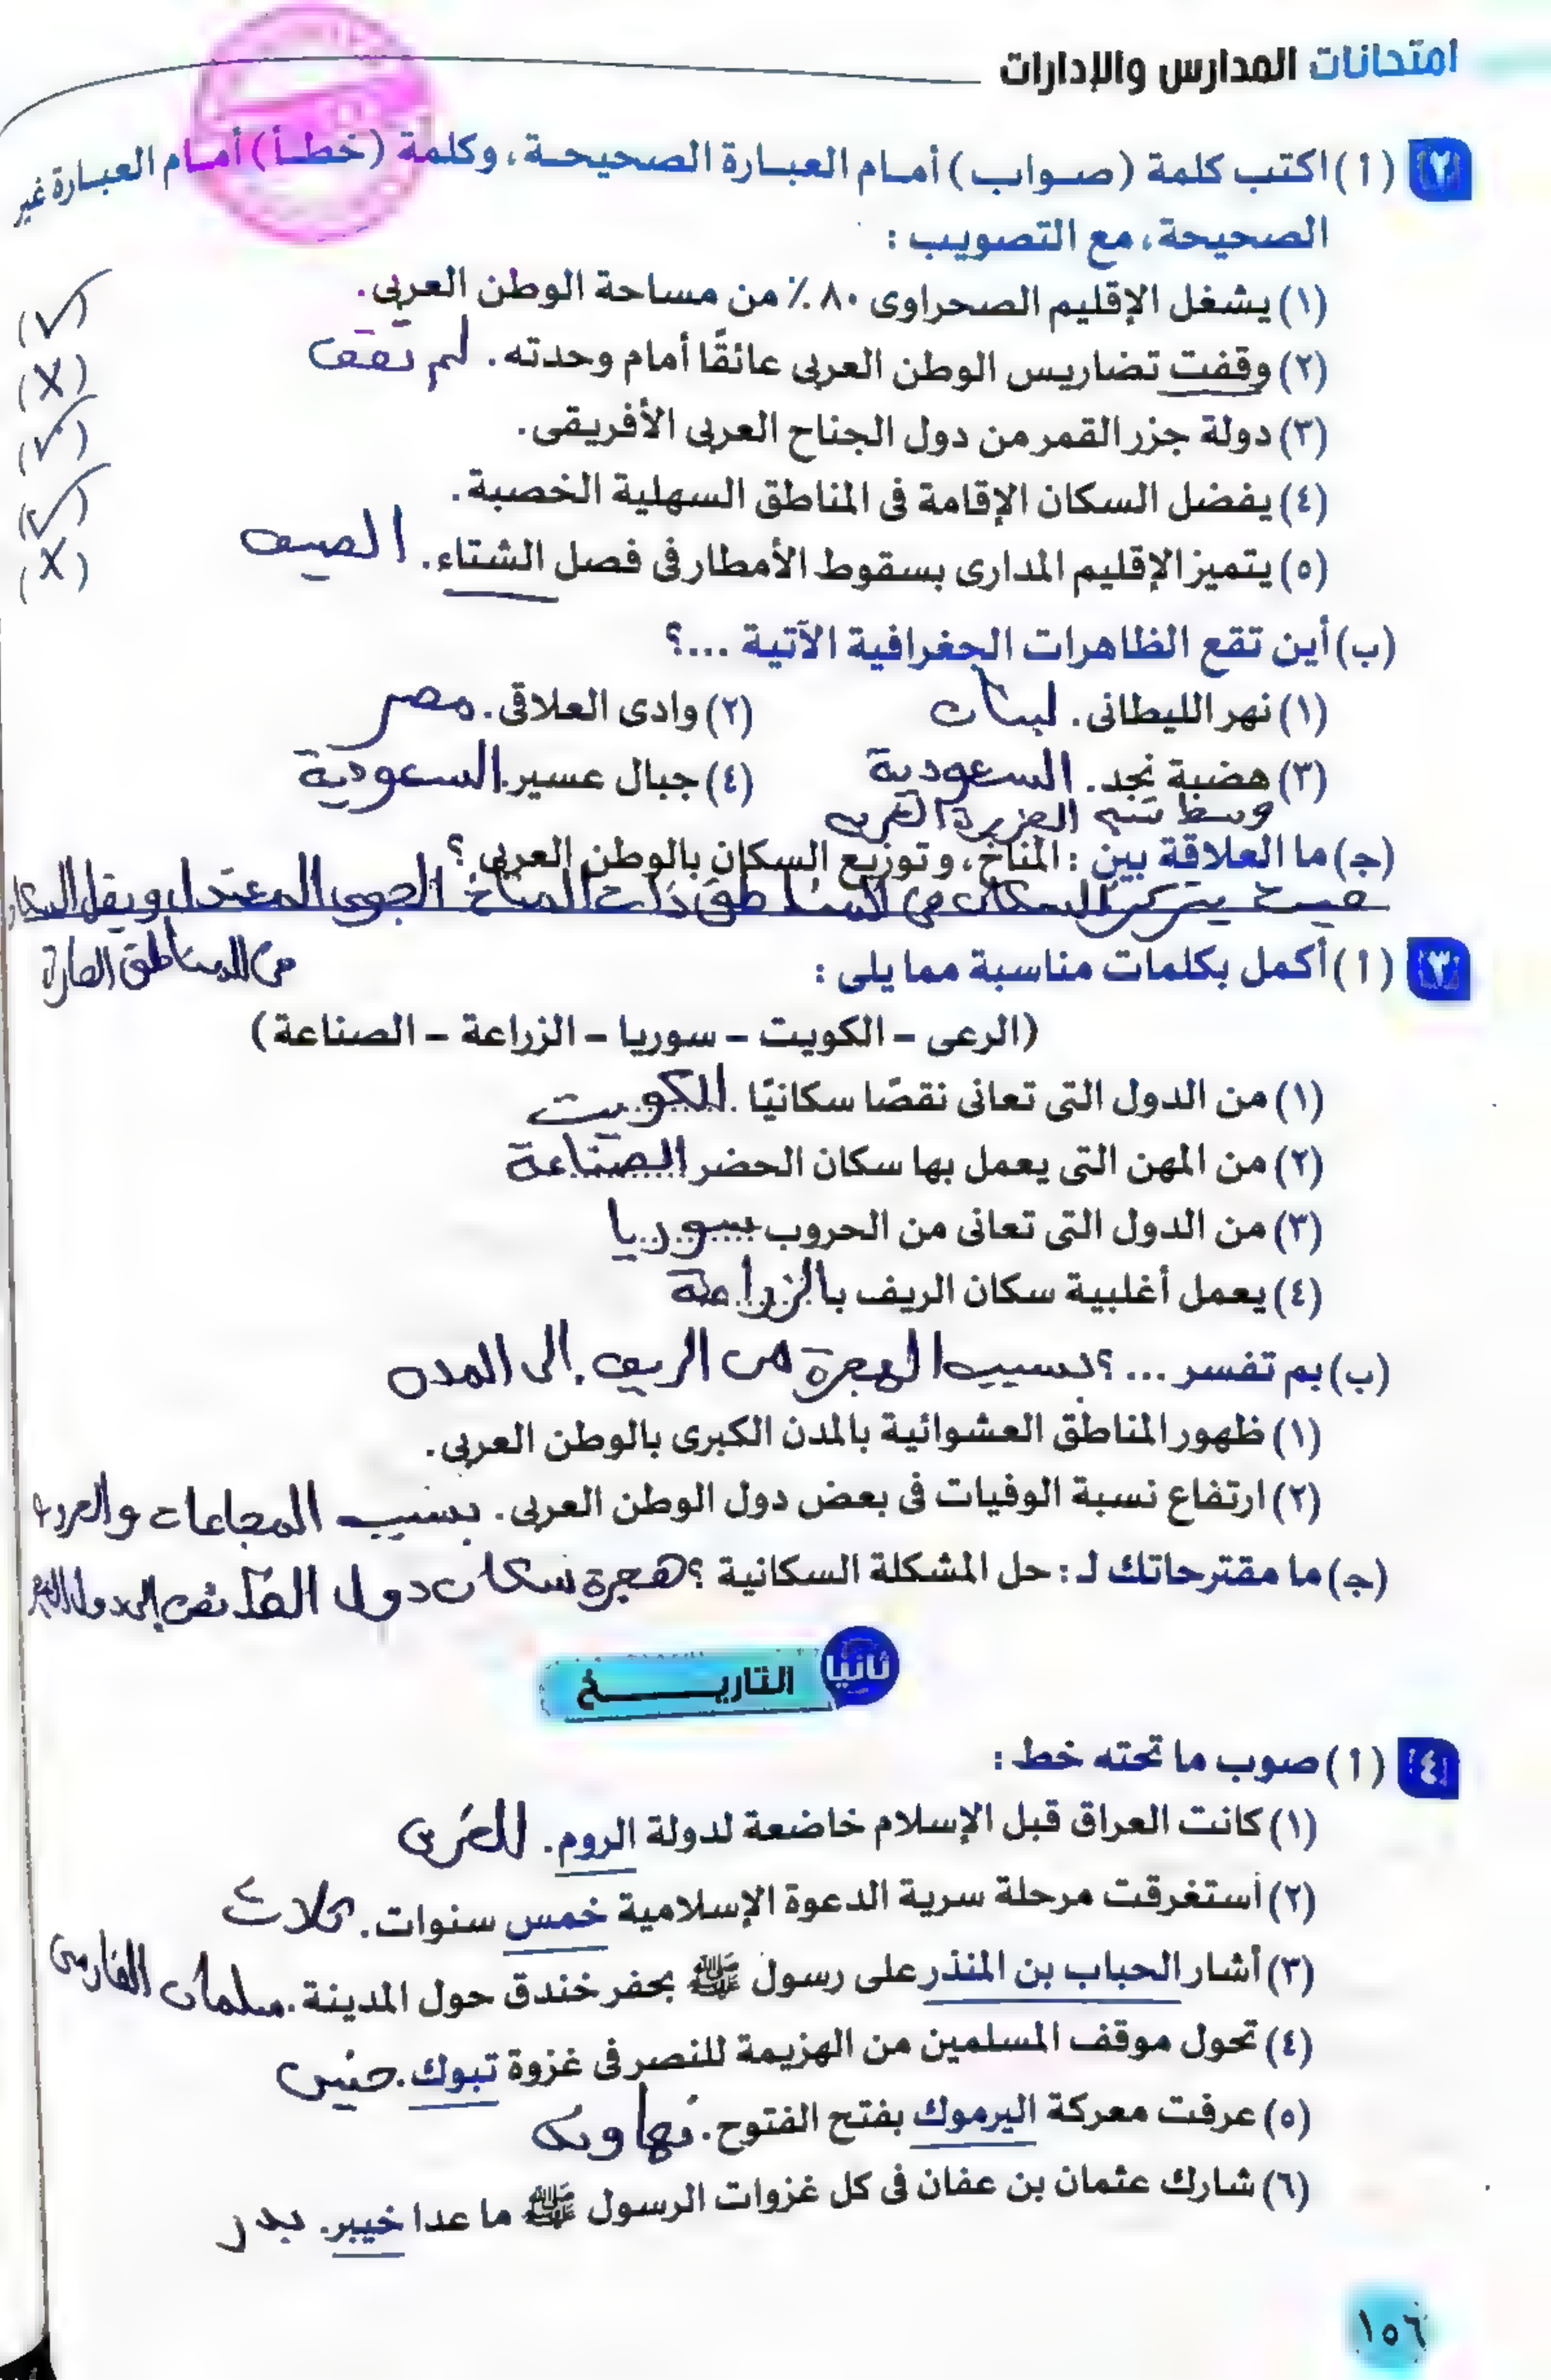 امتحانات المدارس والإدارات
٢ (أ) اكتب كلمة (صواب) أمام العبارة الصحيحة، وكلمة (خطأ) أمام العبارة غير
الصحيحة، مع التصويب :
(١) يشغل الإقليم الصحراوى ٨٠٪ من مساحة الوطن العربى. (✓)
(٢) وقفت تضاريس الوطن العربى عائقًا أمام وحدته. لم تقف (X)
(٣) دولة جزر القمر من دول الجناح العربى الأفريقى. (✓)
(٤) يفضل السكان الإقامة فى المناطق السهلية الخصبة. (✓)
(٥) يتميز الإقليم المدارى بسقوط الأمطار فى فصل الشتاء. الصيف (X)
(ب) أين تقع الظاهرات الجغرافية الآتية ...؟
(١) نهر الليطانى. لبنان (٢) وادى العلاقى. مصر
(٣) هضبة نجد. السعودية (٤) جبال عسير. السعودية
وسط شبه الجزيرة العربية
(ج) ما العلاقة بين : المناخ، وتوزيع السكان بالوطن العربى ؟
حيث يتركز السكان فى المناطق ذات المناخ الجوى المعتدل ويقل السكان
فى المناطق الحارة
٣ (أ) أكمل بكلمات مناسبة مما يلى :
(الرعى – الكويت – سوريا – الزراعة – الصناعة)
(١) من الدول التى تعانى نقصًا سكانيًا الكويت
(٢) من المهن التى يعمل بها سكان الحضر الصناعة
(٣) من الدول التى تعانى من الحروب سوريا
(٤) يعمل أغلبية سكان الريف بالزراعة
(ب) بم تفسر ... ؟ بسبب الهجرة من الريف إلى المدن
(١) ظهور المناطق العشوائية بالمدن الكبرى بالوطن العربى.
(٢) ارتفاع نسبة الوفيات فى بعض دول الوطن العربى. بسبب المجاعات والحروب
(ج) ما مقترحاتك لـ : حل المشكلة السكانية ؟ هجرة سكان دول الفائض إلى دول
ثانيًا التاريـــخ
٤ (أ) صوب ما تحته خط :
(١) كانت العراق قبل الإسلام خاضعة لدولة الروم. الفرس
(٢) أستغرقت مرحلة سرية الدعوة الإسلامية خمس سنوات. ثلاث
(٣) أشار الحباب بن المنذر على رسول ﷺ بحفر خندق حول المدينة. سلمان الفارسى
(٤) تحول موقف المسلمين من الهزيمة للنصر فى غزوة تبوك. حنين
(٥) عرفت معركة اليرموك بفتح الفتوح. نهاوند
(٦) شارك عثمان بن عفان فى كل غزوات الرسول ﷺ ما عدا خيبر. بدر
١٥٦